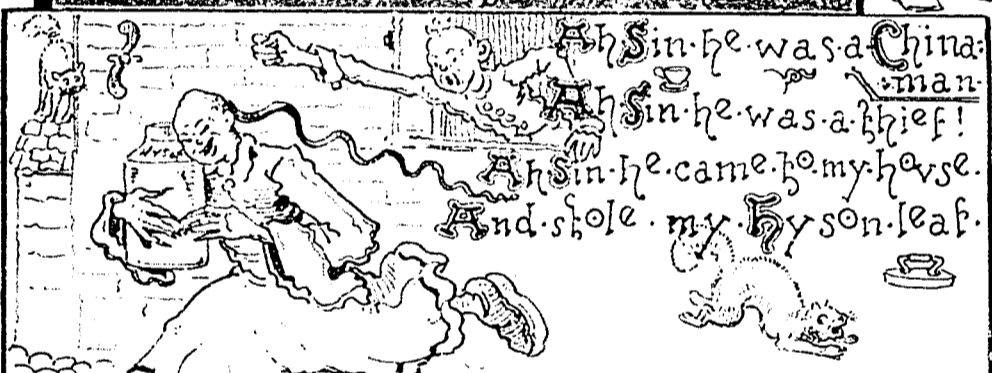 Ah Sin·he·was·a·China:
man·
Ah Sin·he·was·a·thief!
Ah Sin·he·came·to·my·house.
And·stole·my·Hyson·leaf.